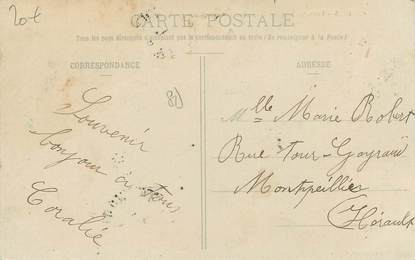 20€
CARTE POSTALE
Tous les pays étrangers n'acceptent pas la correspondance au recto (Se renseigner à la Poste)
CORRESPONDANCE
ADRESSE
Souvenir
bonjour à tous
Coralie
Mlle Marie Robert
Rue Tour-Gayraud
Montpellier
(Hérault